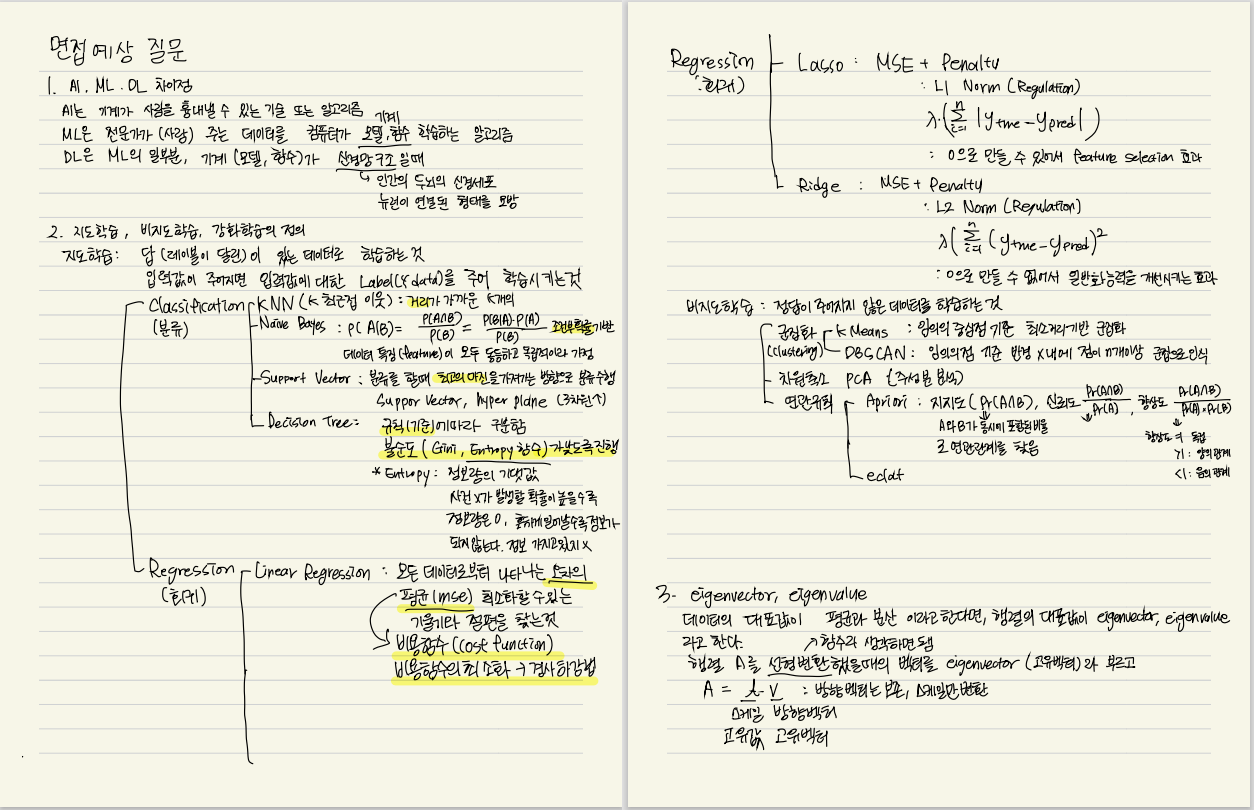 면접 예상 질문
1. AI, ML, DL 차이점
AI는 기계가 사람을 흉내낼 수 있는 기술 또는 알고리즘
기계
ML은 전문가가 (사람) 주는 데이터를 컴퓨터가 모델, 함수 학습하는 알고리즘
DL은 ML의 일부분, 기계 (모델, 함수)가 신경망 구조 일때
↳ 인간의 두뇌의 신경세포
뉴런이 연결된 형태를 모방
2. 지도학습, 비지도학습, 강화학습의 정의
지도학습: 답 (레이블이 달린)이 있는 데이터로 학습하는 것
입력값이 주어지면 입력값에 대한 Label(Y data)를 주어 학습시키는것
Classification
(분류)
KNN (K 최근접 이웃) : 거리가 가까운 K개의
Naive Bayes : P(A|B) = P(A∩B)/P(B) = P(B|A)·P(A)/P(B) 조건부확률 기반
데이터 특징(feature)이 모두 동등하고 독립적이라 가정
Support Vector : 분류를 할때 최고의 마진을 가져가는 방향으로 분류수행
Suppor Vector, hyper plane (3차원↑)
Decision Tree: 규칙(기준)에따라 구분함
불순도 (Gini, Entropy 함수)가 낮도록 진행
* Entropy : 정보량의 기댓값
사건 X가 발생할 확률이 높을수록
정보량은 0, 흔하게 일어날수록 정보가
되지 않는다. 정보 가지고있지 X
Regression
(회귀)
Linear Regression : 모든 데이터로부터 나타나는 오차의
평균(mse) 최소화할 수 있는
기울기와 절편을 찾는것
비용함수 (cost function)
비용함수의 최소화 → 경사하강법
Regression
(회귀)
Lasso : MSE + Penalty
: L1 Norm (Regulation)
λ·(∑ⁿᵢ₌₁ |ytrue-ypred|)
: 0으로 만들 수 있어서 feature selection 효과
Ridge : MSE + Penalty
: L2 Norm (Regulation)
λ(∑ⁿᵢ₌₁ (ytrue-ypred)²
: 0으로 만들 수 없어서 일반화능력을 개선시키는 효과
비지도학습 : 정답이 주어지지 않은 데이터를 학습하는 것
군집화
(clustering)
K Means : 임의의 중심점 기준 최소거리기반 군집화
DBSCAN : 임의의점 기준 반경 X내에 점이 n개이상 군집으로 인식
차원축소 PCA (주성분 분석)
연관규칙
Apriori : 지지도 (Pr(A∩B)), 신뢰도 Pr(A∩B)/Pr(A), 향상도 Pr(A∩B)/Pr(A)·Pr(B)
A와 B가 동시에 포함된 비율
로 연관관계를 찾음
향상도 =1 독립
>1 : 양의관계
<1 : 음의관계
eclat
3- eigenvector, eigenvalue
데이터의 대표값이 평균과 분산 이라고 한다면, 행렬의 대표값이 eigenvector, eigenvalue
라고 한다.
↗ 함수라 생각하면 됨
행렬 A를 선형변환 했을때의 벡터를 eigenvector (고유벡터)라 부르고
A = λ·V : 방향벡터는 보존, 스케일만 변환
스케일 방향벡터
고유값 고유벡터